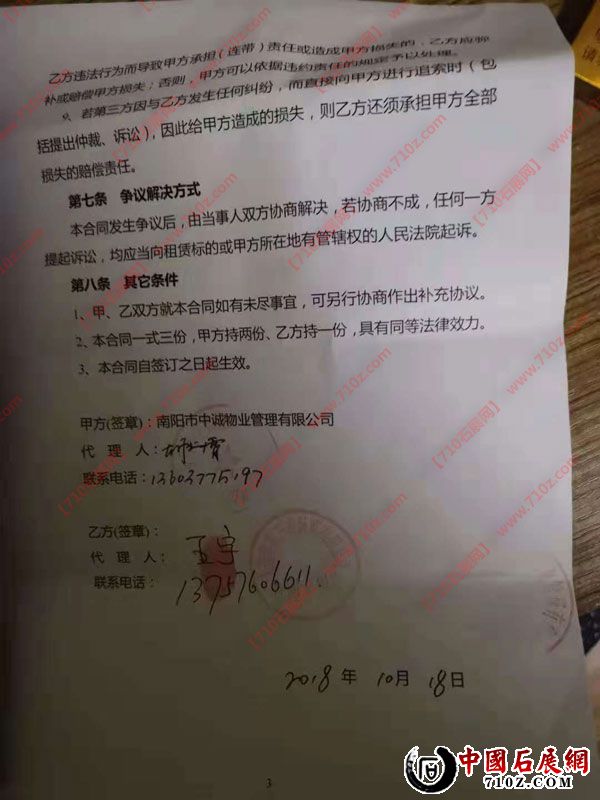 乙方违法行为而导致甲方承担（连带）责任或造成甲方损失的，乙方应弥
补或赔偿甲方损失；否则，甲方可以依据违约责任的规定予以处理。
9、若第三方因与乙方发生任何纠纷，而直接向甲方进行追索时（包
括提出仲裁、诉讼），因此给甲方造成的损失，则乙方还须承担甲方全部
损失的赔偿责任。
第七条 争议解决方式
本合同发生争议后，由当事人双方协商解决，若协商不成，任何一方
提起诉讼，均应当向租赁标的或甲方所在地有管辖权的人民法院起诉。
第八条 其它条件
1、甲、乙双方就本合同如有未尽事宜，可另行协商作出补充协议。
2、本合同一式三份，甲方持两份、乙方持一份，具有同等法律效力。
3、本合同自签订之日起生效。
甲方(签章)：南阳市中诚物业管理有限公司
代 理 人：
联系电话：13603775197
乙方(签章)：
代 理 人：
联系电话：13757606611
2018 年 10 月 18 日
3
【710石展网】www.710z.com
中國石展網
710Z.COM